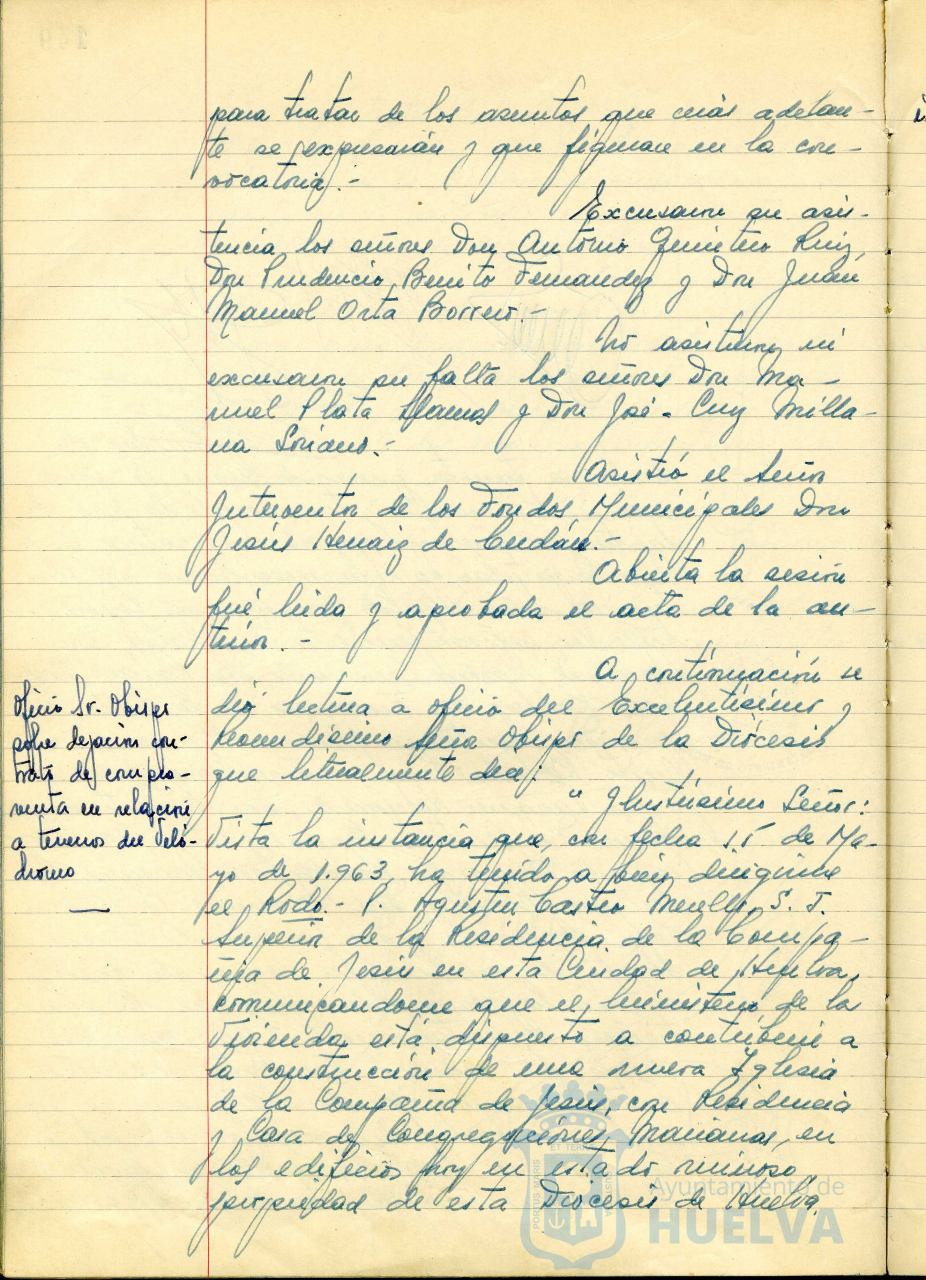 para tratar de los asuntos que más adelan-
te se expresarán y que figuran en la con-
vocatoria.-
Excusaron su asis-
tencia los señores Don Antonio Quintero Ruiz,
Don Prudencio Benito Fernandez y Don Juan
Manuel Orta Borrero.-
No asistieron ni
excusaron su falta los señores Don Ma-
nuel Plata Llamas y Don José-Cruz Milla-
na Soriano.-
Asistió el Señor
Interventor de los Fondos Municipales Don
Jesús Henaiz de
Abierta la sesión
fué leida y aprobada el acta de la an-
terior.-
A continuación se
dió lectura a oficio del Excelentísimo y
Reverendísimo Señor Obispo de la Diócesis
que literalmente dice:
Oficio Sr. Obispo
sobre dejacion con-
trato de compra-
venta en relación
a terrenos del Veló-
dromo
" Ilustrísimo Señor:
Vista la instancia que, con fecha 15 de Ma-
yo de 1.963, ha tenido a bien dirigirme
el Rvdo.- P. Agustín Castro S. J.
Superior de la Residencia de la Compa-
ñia de Jesús en esta Ciudad de Huelva,
comunicandome que el Ministerio de la
Vivienda está dispuesto a contribuir a
la construcción de una nueva Iglesia
de la Compañia de Jesús, con Residencia
y Casa de Congregaciones Marianas, en
los edificios hoy en estado ruinoso
propiedad de esta Diócesis de Huelva,
Ayuntamiento de
HUELVA